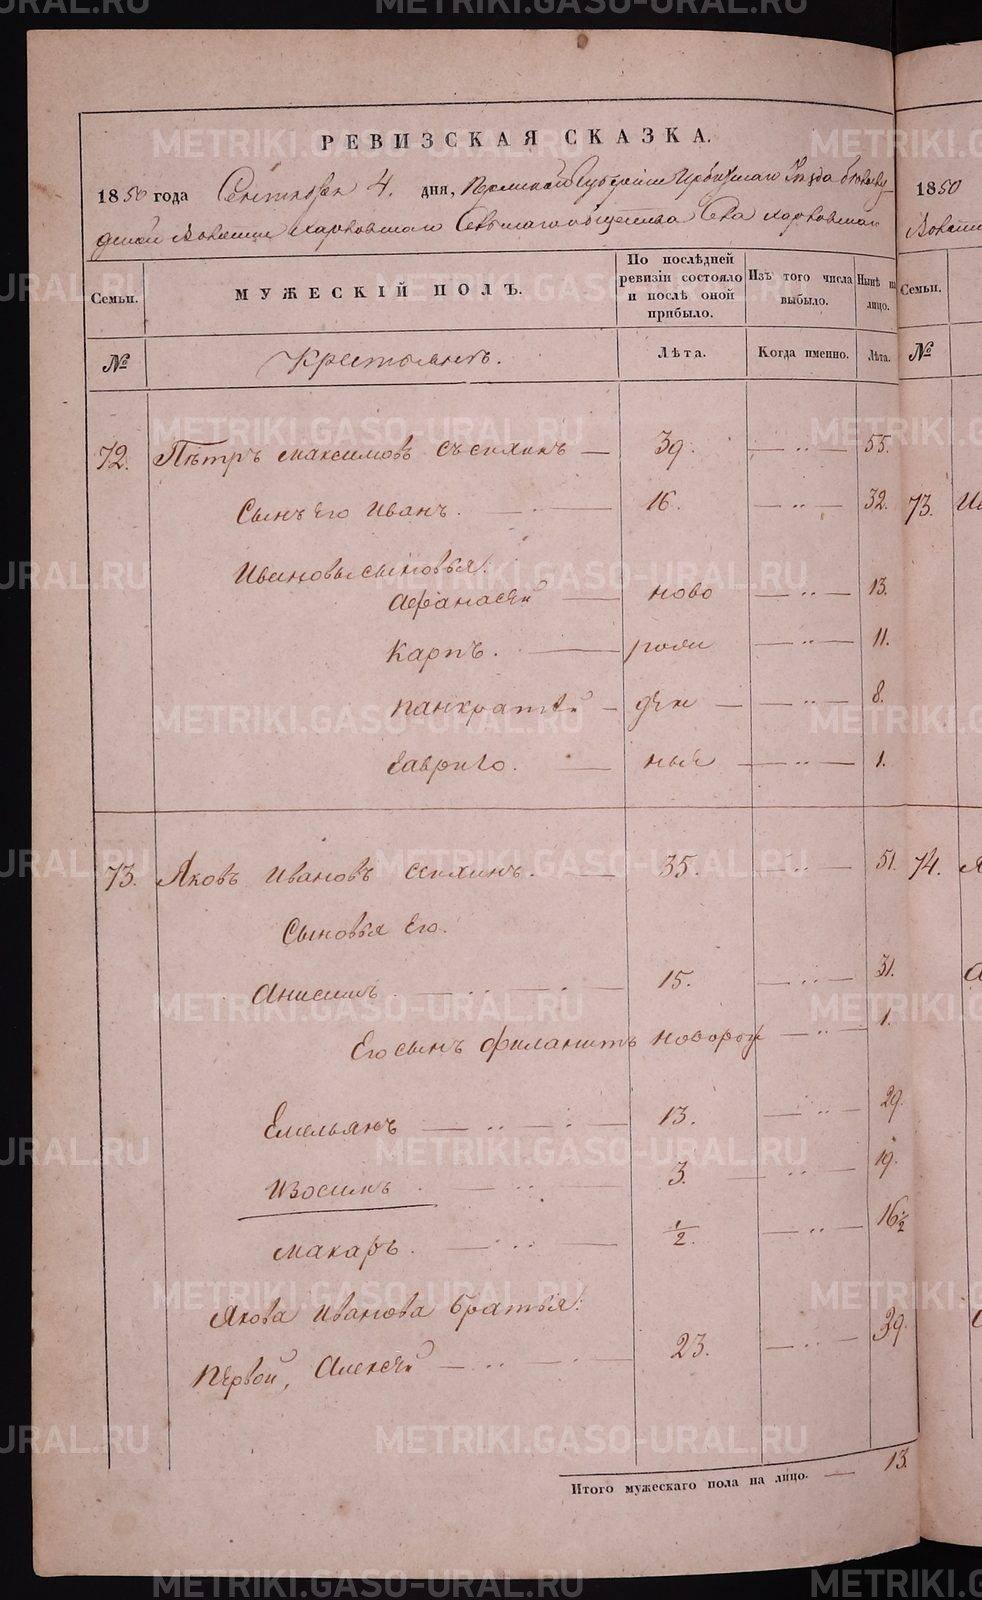 РЕВИЗСКАЯ СКАЗКА.
1850 года Сентября 4. дня, Пермской Губернии Ирбитскаго Уезда
Волости Харловскаго Сельскаго общества Села Харловскаго
Семьи.
МУЖЕСКІЙ ПОЛЪ.
По послѣдней ревизіи состояло и послѣ оной прибыло.
Изъ того числа выбыло.
Нынѣ на лицо.
№
Крестьянъ.
Лѣта.
Когда именно.
Лѣта.
72. Пѣтръ Максимовъ — 39. — „ — 55.
Сынъ Его Иванъ. — 16. — „ — 32.
Ивановы сыновья:
Афанасей — ново — „ — 13.
Карпъ. — рож — „ — 11.
Панкратѣй — ден — „ — 8.
Гаврило. — ные — „ — 1.
73. Яковъ Ивановъ — 35. — „ — 51.
Сыновья Его.
Анисимъ — 15. — „ — 31.
Его сынъ новорож — „ — 1.
Емельянъ — 13. — „ — 29.
Изосимъ — 3. — „ — 19.
Макаръ. — 1/2. — „ — 16 1/2
Якова Иванова братья:
Первой, Алексей — 23. — „ — 39.
Итого мужескаго пола на лицо. — 13.
1850
Семьи.
№
73.
74.
METRIKI.GASO-URAL.RU